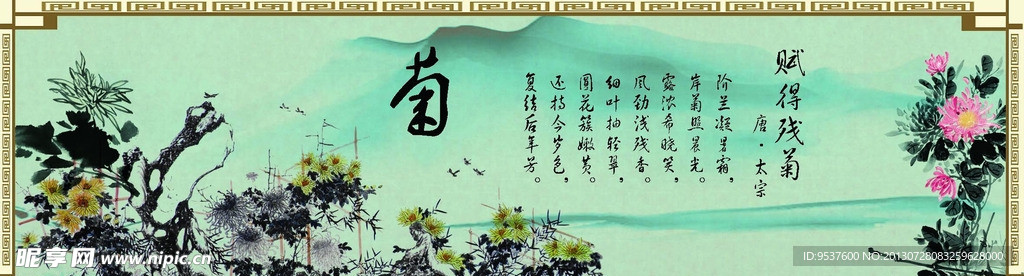 菊
赋得残菊
唐·太宗
阶兰凝暑霜，
岸菊照晨光。
露浓希晓笑，
风劲浅残香。
细叶抽轻翠，
圆花簇嫩黄。
还持今岁色，
复结后年芳。
昵享网 www.nipic.cn
ID:9537600 NO:20130728083259628000